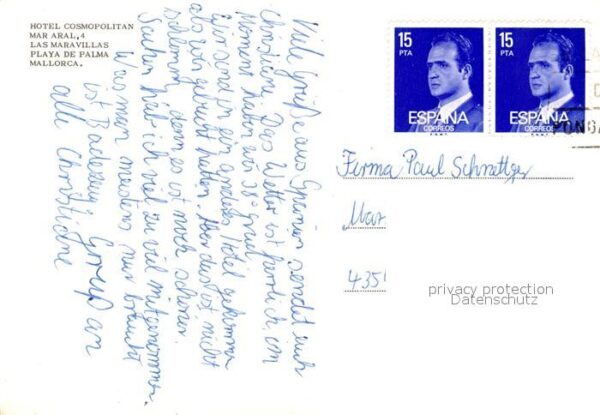 HOTEL COSMOPOLITAN
MAR ARAL,4
LAS MARAVILLAS
PLAYA DE PALMA
MALLORCA.
Viele Grüße aus Spanien sendet euch
Christiane. Das Wetter ist herrlich, im
Moment haben wir 30 grad.
Wir sind in ein anderes Hotel gekommen
als wir gebucht hatten. Aber das ist nicht
schlimm, denn es ist noch schöner.
Sachen hab ich viel zu viel mitgenommen.
Wo man meistens nur braucht
ist Badezeug. Gruß an
alle Christiane
15
PTA
ESPAÑA
CORREOS
15
PTA
ESPAÑA
CORREOS
Firma Paul
435
privacy protection
Datenschutz